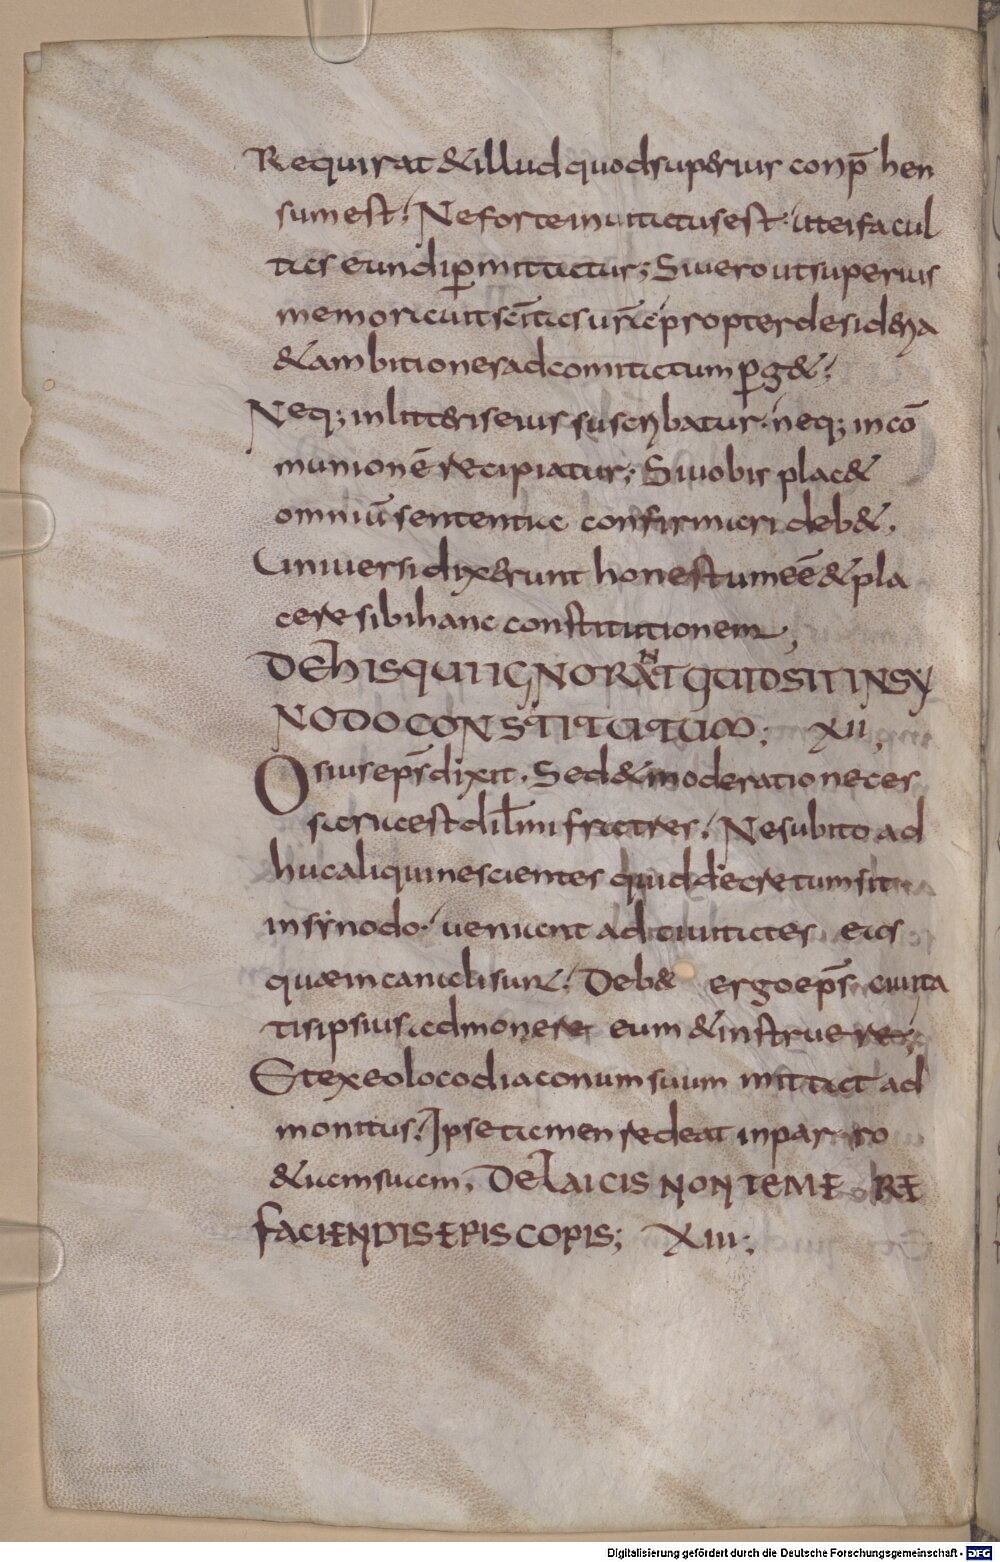 Requirat & illud quod superius conp̄hen
sum est. Ne forte inuitatus est. ut ei facul
tas eundi ꝑmittatur; Si uero ut superius
memorauit sc̄itas ur̄a propter desideria
& ambitiones ad comitatum ꝑg&.
Neq; in litteris eius suscribatur. neq; in cō
munionē recipiatur; Si uobis plac&
omniū sententia confirmari deb&.
Uniuersi dixerunt honestum eē & pla
cere sibi hanc constitutionem;
DE HIS QUI IGNORANT QUID SIT IN SY
NODO CONSTITUTUM; XII;
Osius ep̄s dixit. Sed & moderatio neces
saria est dil̄mi fratres. Ne subito ad
huc aliqui nescientes quid decretum sit
in synodo. ueniant ad ciuitates eas
quæ in canali sunt. Deb& ergo ep̄s ciuita
tis ipsius admonere eum & instruere;
Et ex eo loco diaconum suum mittat ad
monitus. Ipse tamen redeat in parro
&iam suam. DE LAICIS NON TEMERE
FACIENDIS EPISCOPIS; XIII;
Digitalisierung gefördert durch die Deutsche Forschungsgemeinschaft - DFG